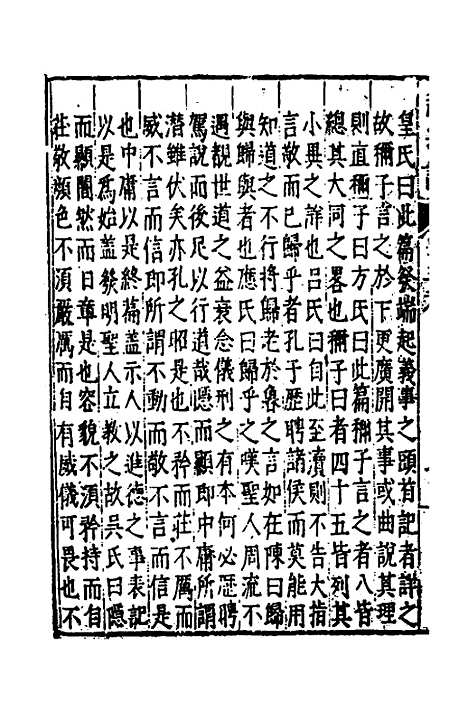 皇氏曰此篇發端起義事之頭首記者詳之
故稱子言之於下更廣開其事或曲說其理
則直稱子曰方氏曰此篇稱子言之者八皆
總其大同之畧也稱子曰者四十五皆列其
小異之詳也呂氏曰自此至瀆則不告大指
言敬而已歸乎者孔子歷聘諸侯而莫能用
知道之不行將歸老於魯之言如在陳曰歸
與歸與者也應氏曰歸乎之嘆聖人周流不
遇覩世道之益衰念儀刑之有本何必歷聘
駕說而後足以行道哉隱而顯即中庸所謂
潛雖伏矣亦孔之昭是也不矜而莊不厲而
威不言而信即所謂不動而敬不言而信是
也中庸以是終篇盖示人以進德之事表記
以是爲始盖發明聖人立教之故吳氏曰隱
而顯闇然而日章是也容貌不湏矜持而自
莊敬顔色不湏嚴厲而自有威儀可畏也不